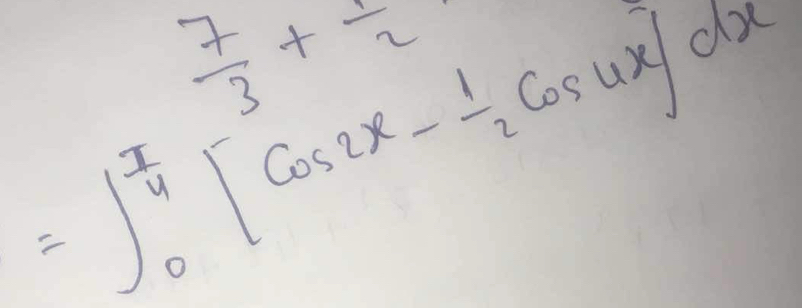 7/3 + 1/2
= ∫₀^(π/4) [Cos2x - 1/2 Cos4x] dx